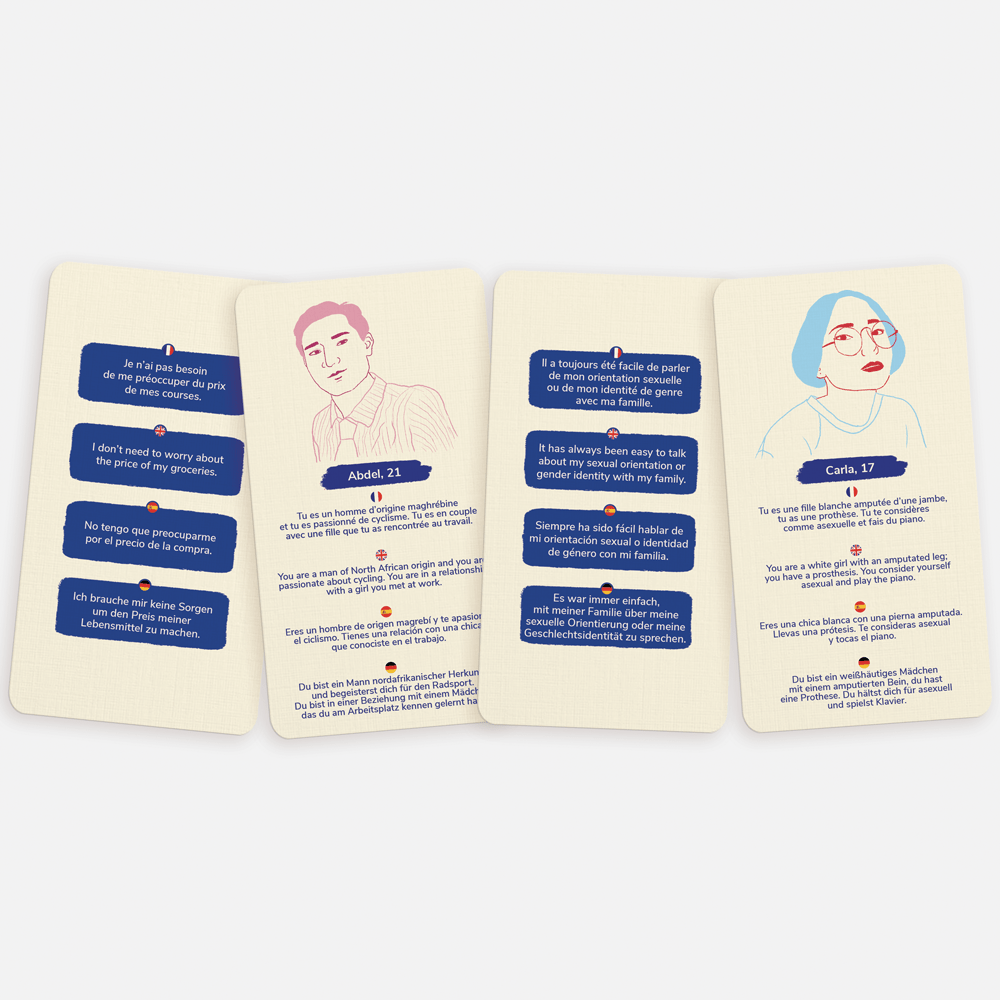 Je n'ai pas besoin
de me préoccuper du prix
de mes courses.
I don't need to worry about
the price of my groceries.
No tengo que preocuparme
por el precio de la compra.
Ich brauche mir keine Sorgen
um den Preis meiner
Lebensmittel zu machen.
Abdel, 21
Tu es un homme d'origine maghrébine
et tu es passionné de cyclisme. Tu es en couple
avec une fille que tu as rencontrée au travail.
You are a man of North African origin and you are
passionate about cycling. You are in a
with a girl you met at work.
Eres un hombre de origen magrebí y te
el ciclismo. Tienes una relación con una chica
que conociste en el trabajo.
Du bist ein Mann nordafrikanischer
und begeisterst dich für den Radsport.
Du bist in einer Beziehung mit einem
das du am Arbeitsplatz kennen gelernt
Il a toujours été facile de parler
de mon orientation sexuelle
ou de mon identité de genre
avec ma famille.
It has always been easy to talk
about my sexual orientation or
gender identity with my family.
Siempre ha sido fácil hablar de
mi orientación sexual o identidad
de género con mi familia.
Es war immer einfach,
mit meiner Familie über meine
sexuelle Orientierung oder meine
Geschlechtsidentität zu sprechen.
Carla, 17
Tu es une fille blanche amputée d'une jambe,
tu as une prothèse. Tu te considères
comme asexuelle et fais du piano.
You are a white girl with an amputated leg;
you have a prosthesis. You consider yourself
asexual and play the piano.
Eres una chica blanca con una pierna amputada.
Llevas una prótesis. Te consideras asexual
y tocas el piano.
Du bist ein weißhäutiges Mädchen
mit einem amputierten Bein, du hast
eine Prothese. Du hältst dich für asexuell
und spielst Klavier.